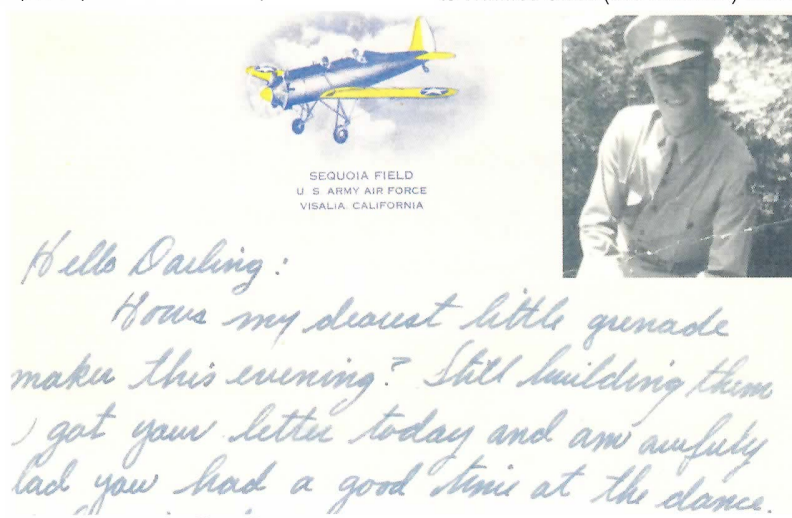 SEQUOIA FIELD
U. S. ARMY AIR FORCE
VISALIA, CALIFORNIA
Hello Darling:
Hows my dearest little grenade
maker this evening? Still building them
got your letter today and am awfuly
lad you had a good time at the dance.